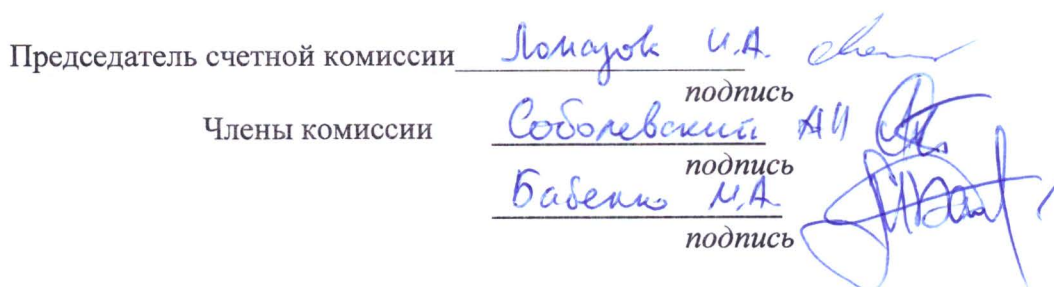 Председатель счетной комиссии Ломазов И.А.
подпись
Члены комиссии Соболевский АИ
подпись
Бабенко М.А.
подпись